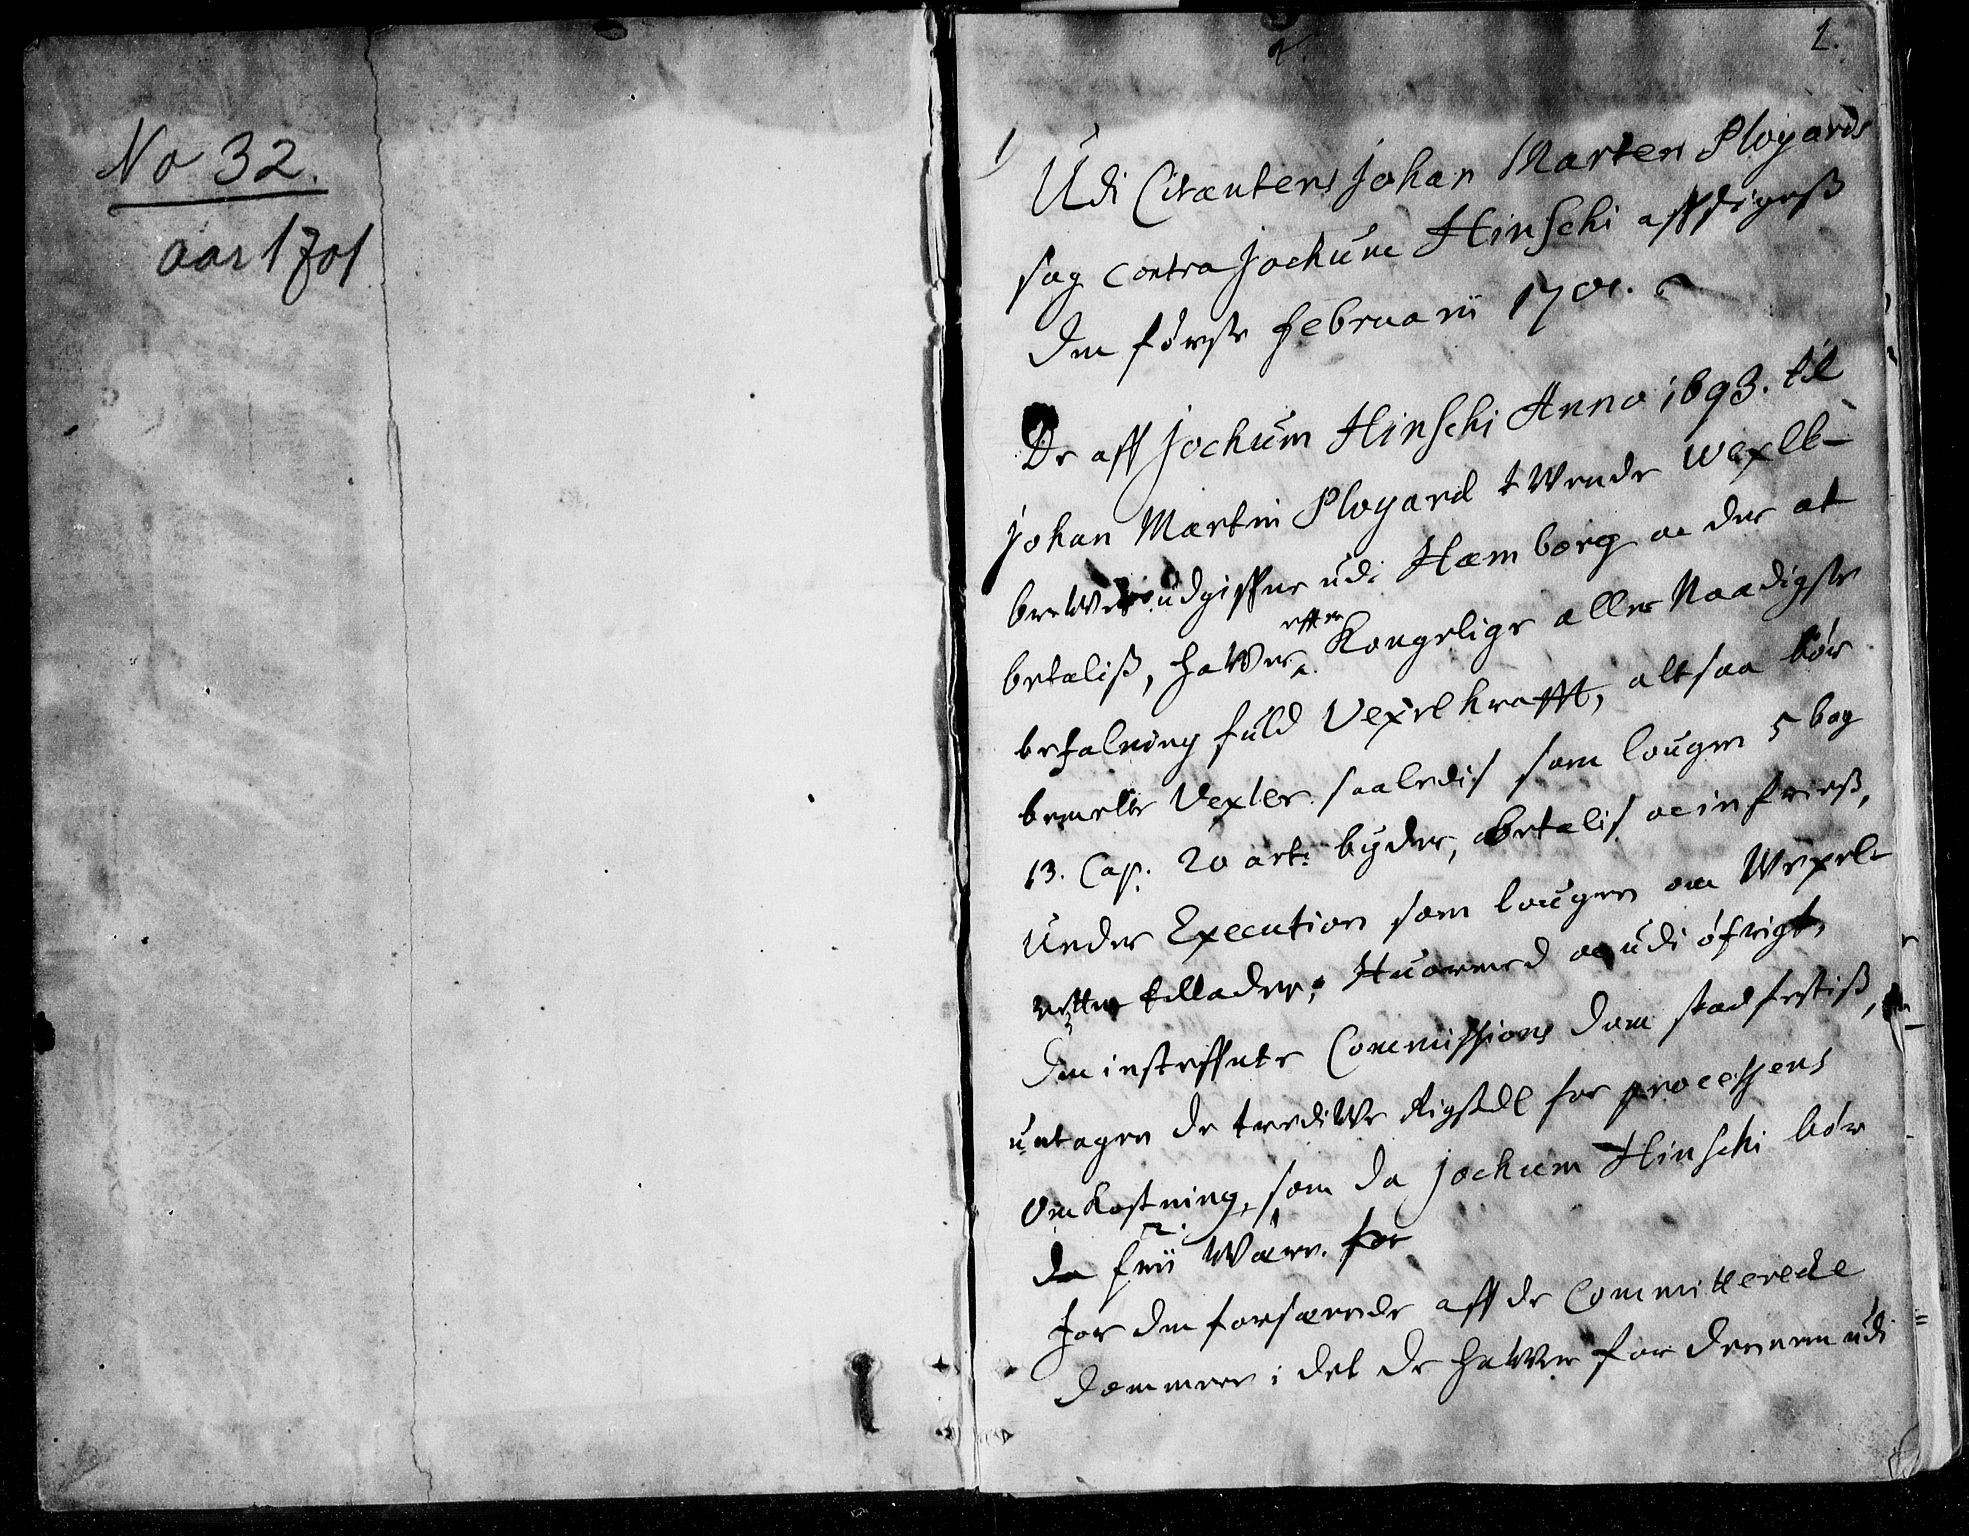 No 32.
aar 1701
2.
1
Udi Citantens Johan Marten Ployards
sag contra Jochum Hinschi affsigess
den første Februarii 1701.
De aff Jochum Hinschi Anno 1693. til
Johan Martin Ployard tvende wexel-
brewe udgiffne udi Hamborg oc der at
betaliss, hawer efter Kongelige aller Naadigste
befalning fuld Vexel krafft, altsaa bør
bemelte Vexler saaledis som lougen 5 bog
13. Cap. 20 art: byder, betalis oc infriess,
under Execution som lougen om Wexel-
retten tillader; Huormed oc udi øfrigt
den insteffnte Commissions dom stadfestiss,
untagen de trediwe Rigsdl for processens
omkostning, som da Jochum Hinschi bør
da frii være. for
for den forseende aff de Committerede
dommere i det de hawer for dennem udi